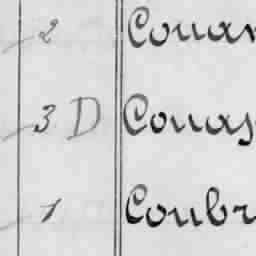 2 Couan
3 D Couas
1 Coubr